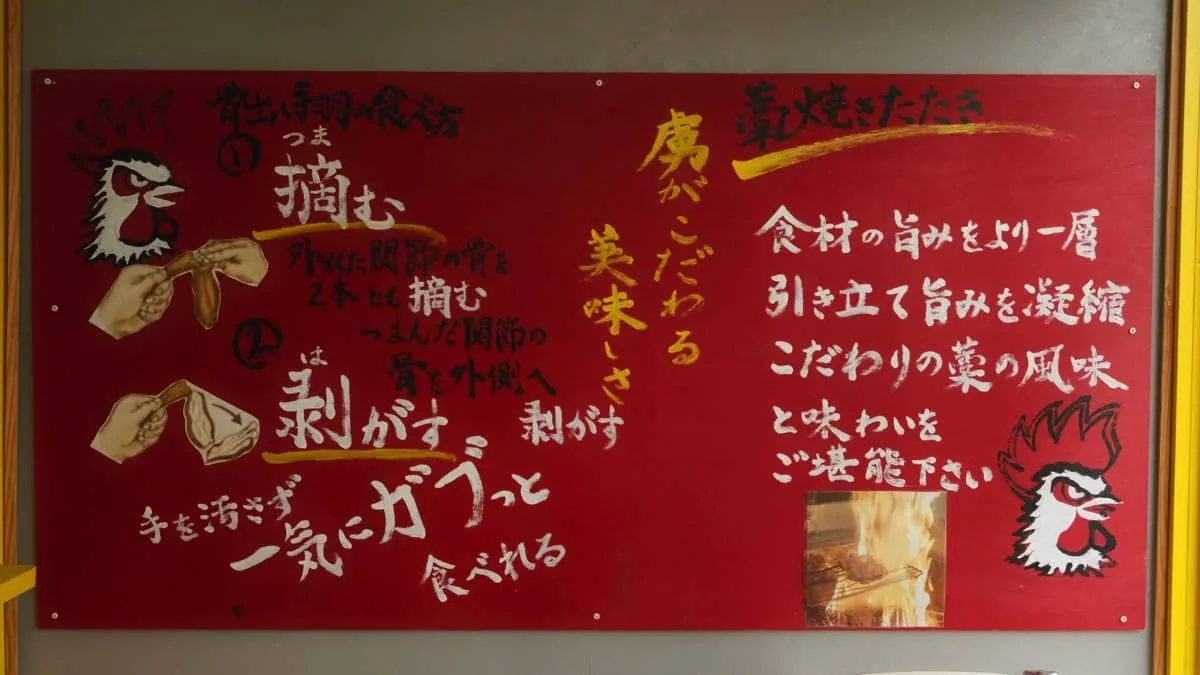 骨出し手羽の食べ方
①
つま
摘む
外れた関節の骨を
2本とも摘む
②
つまんだ関節の
骨を外側へ
は
剥がす
剥がす
手を汚さず
一気にガブっと
食べれる
虜がこだわる
美味しさ
藁焼きたたき
食材の旨みをより一層
引き立て旨みを凝縮
こだわりの藁の風味
と味わいを
ご堪能下さい